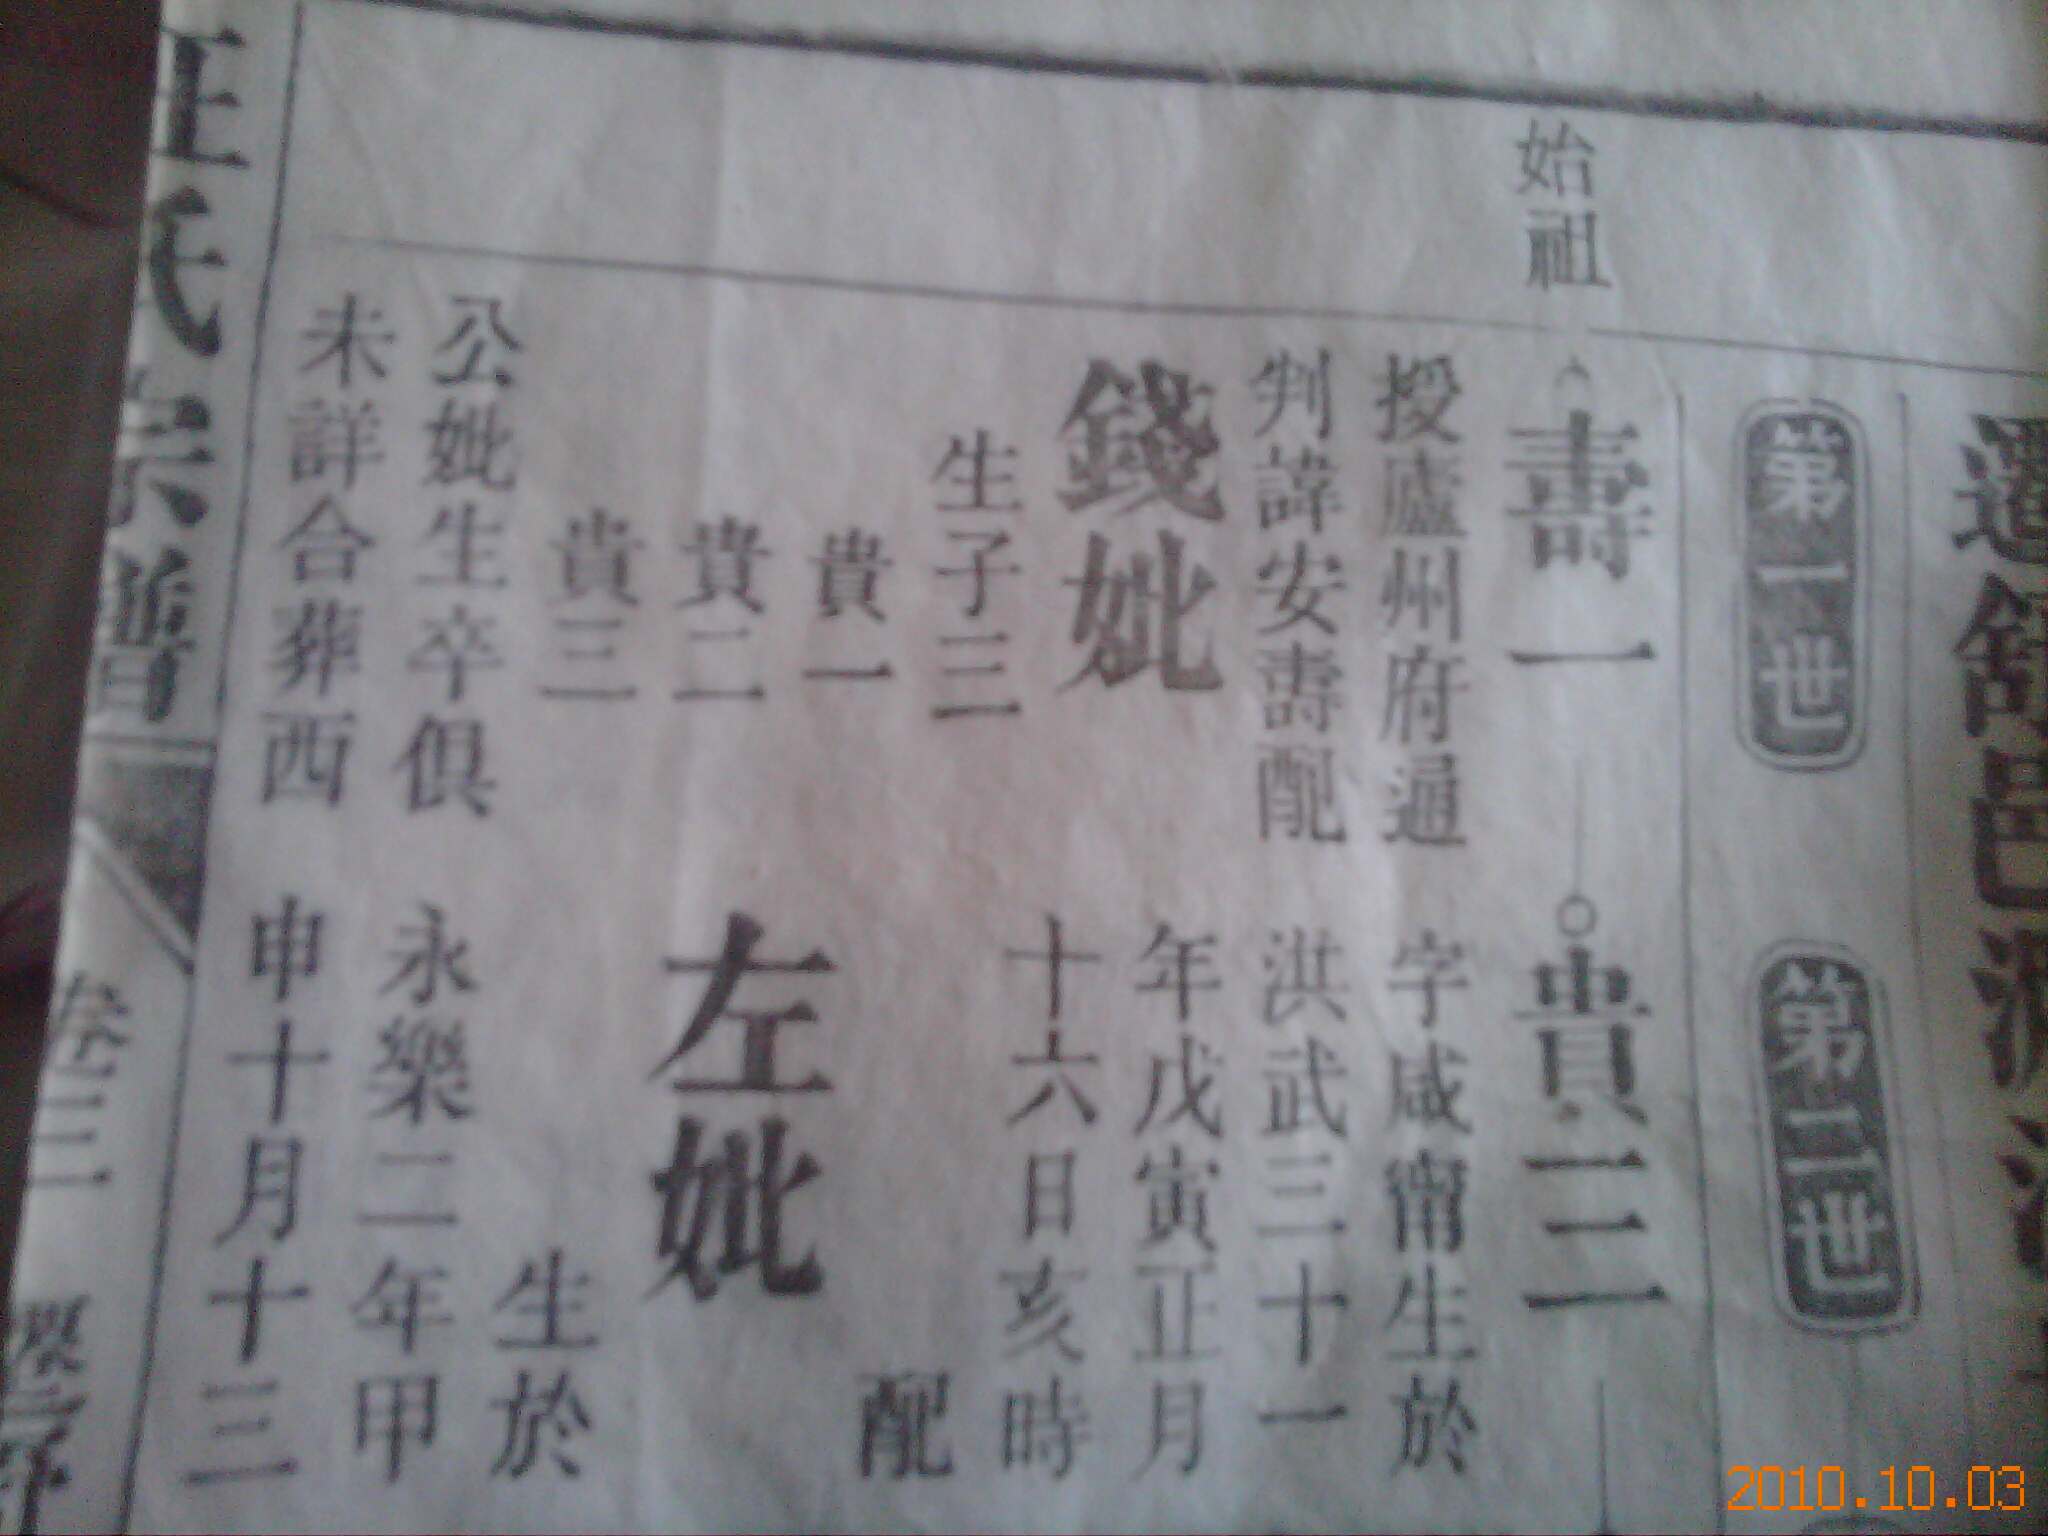 遷舒邑
第一世
第二世
始祖
壽一
貴三
授廬州府通
判諱安壽配
錢妣
生子三
貴一
貴二
貴三
公妣生卒俱
未詳合葬西
字咸甯生於
洪武三十一
年戊寅正月
十六日亥時
配
左妣
生於
永樂二年甲
申十月十三
汪氏宗譜
卷三
2010.10.03